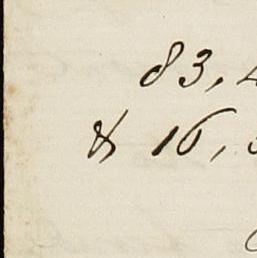 83,
& 16,